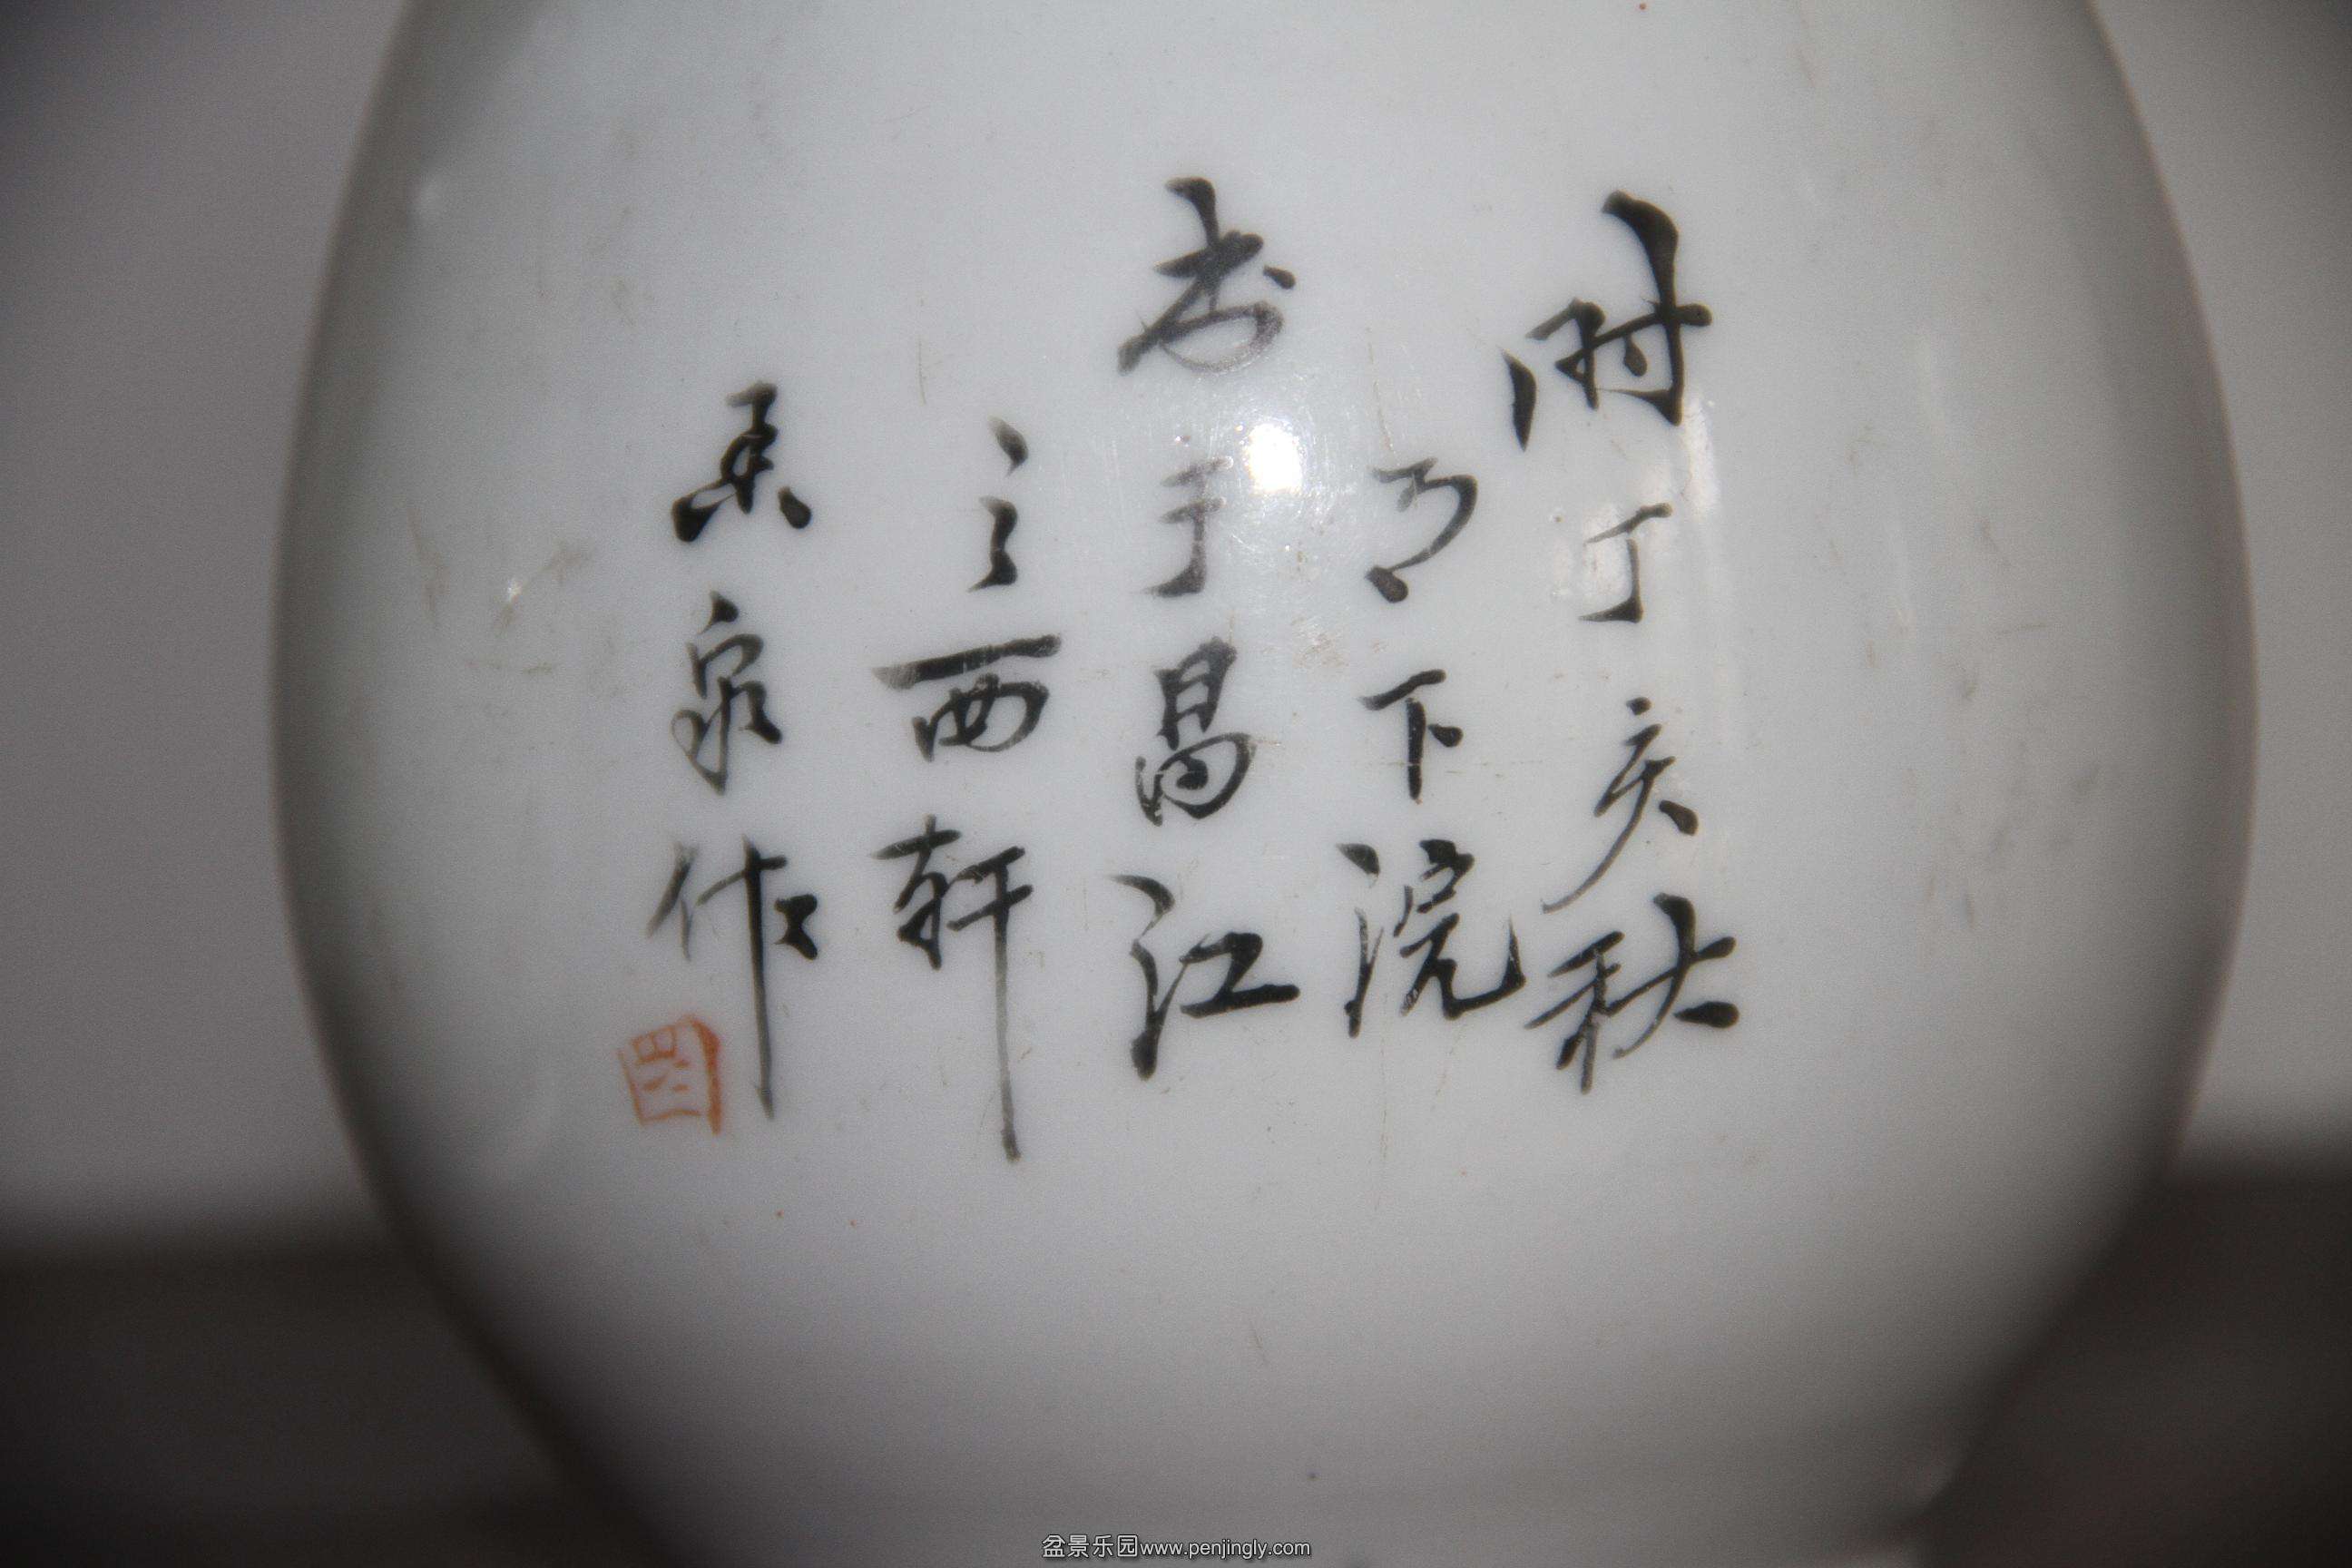 时丁亥秋
月下浣
书于昌江
之西轩
泉作
盆景乐园www.penjingly.com